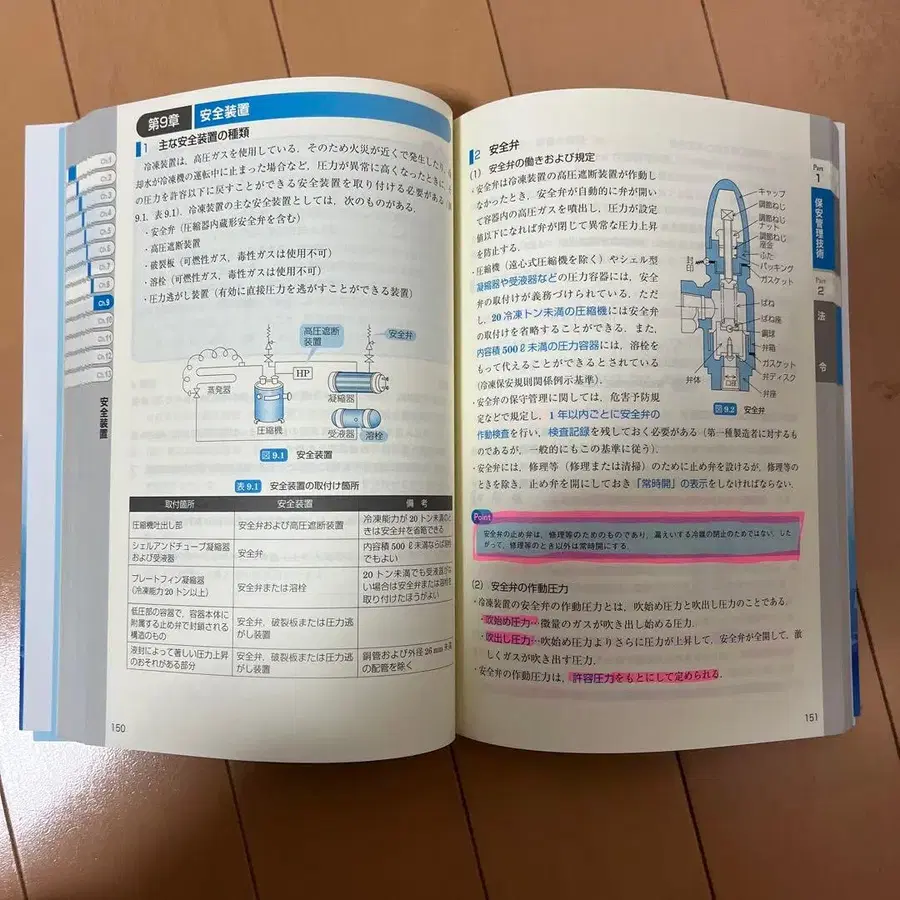 第9章 安全装置
1 主な安全装置の種類
冷凍装置は,高圧ガスを使用している.そのため火災が近くで発生したり,
却水が冷凍機の運転中に止まった場合など,圧力が異常に高くなったときに,
の圧力を許容以下に戻すことができる安全装置を取り付ける必要がある
9.1,表9.1).冷凍装置の主な安全装置としては,次のものがある.
・安全弁(圧縮機内蔵形安全弁を含む)
・高圧遮断装置
・破裂板(可燃性ガス,毒性ガスは使用不可)
・溶栓(可燃性ガス,毒性ガスは使用不可)
・圧力逃がし装置(有効に直接圧力を逃がすことができる装置)
高圧遮断
装置
安全弁
HP
蒸発器
凝縮器
圧縮機
受液器
溶栓
図9.1 安全装置
表9.1 安全装置の取付け箇所
取付箇所 安全装置 備考
圧縮機吐出し部 安全弁および高圧遮断装置 冷凍能力が20トン未満のと
きは安全弁を省略できる
シェルアンドチューブ凝縮器
および受液器
安全弁
内容積500ℓ未満ならば溶栓
でもよい
プレートフィン凝縮器
(冷凍能力20トン以上)
安全弁または溶栓
20トン未満でも受液器がな
い場合は安全弁または溶栓を
取り付けたほうがよい
低圧部の容器で,容器本体に
附属する止め弁で封鎖される
構造のもの
安全弁,破裂板または圧力逃
がし装置
液封によって著しい圧力上昇
のおそれがある部分
安全弁,破裂板または圧力逃
がし装置
銅管および外径26mm未満
の配管を除く
150
Ch.1
Ch.2
Ch.3
Ch.4
Ch.5
Ch.6
Ch.7
Ch.8
Ch.9
Ch.10
Ch.11
Ch.12
Ch.13
安全装置
2 安全弁
(1) 安全弁の働きおよび規定
・安全弁は冷凍装置の高圧遮断装置が作動し
なかったとき,安全弁が自動的に弁が開い
て容器内の高圧ガスを噴出し,圧力が設定
値以下になれば弁が閉じて異常な圧力上昇
を防止する.
・圧縮機(遠心式圧縮機を除く)やシェル型
凝縮器や受液器などの圧力容器には,安全
弁の取付けが義務づけられている.ただ
し,20冷凍トン未満の圧縮機には安全弁
の取付けを省略することができる.また,
内容積500ℓ未満の圧力容器には,溶栓を
もって代えることができるとされている
(冷凍保安規則関係例示基準).
・安全弁の保守管理に関しては,危害予防規
定などで規定し,1年以内ごとに安全弁の
作動検査を行い,検査記録を残しておく必要がある(第一種製造者に対するも
のであるが,一般的にもこの基準に従う).
・安全弁には,修理等(修理または清掃)のために止め弁を設けるが,修理等の
ときを除き,止め弁を開にしておき「常時開」の表示をしなければならない.
キャップ
調節ねじ
調節ねじ
ナット
調節ねじ
座合
ふた
パッキング
ガスケット
封印
ばね
ばね座
鋼球
弁箱
ガスケット
弁ディスク
弁座
弁体
口径
図9.2 安全弁
Point
安全弁の止め弁は,修理等のためのものであり,漏えいする冷媒の閉止のためではない.した
がって,修理等のとき以外は常時開にする.
(2) 安全弁の作動圧力
・冷凍装置の安全弁の作動圧力とは,吹始め圧力と吹出し圧力のことである.
・吹始め圧力…微量のガスが吹き出し始める圧力.
・吹出し圧力…吹始め圧力よりさらに圧力が上昇して,安全弁が全開して,激
しくガスが吹き出す圧力.
・安全弁の作動圧力は,許容圧力をもとにして定められる.
151
Part
1
保安管理技術
Part
2
法令